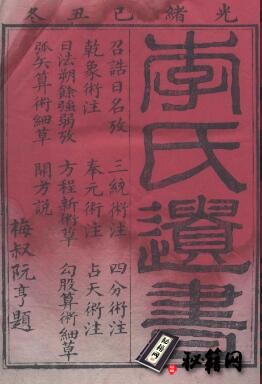 光緒己丑冬
李氏遺書
召誥日名攷 三統術注 四分術注
乾象術注 奉元術注 占天術注
日法朔餘強弱攷 方程新術草 勾股算術細草
弧矢算術細草 開方説
梅叔阮亨題
秘籍网